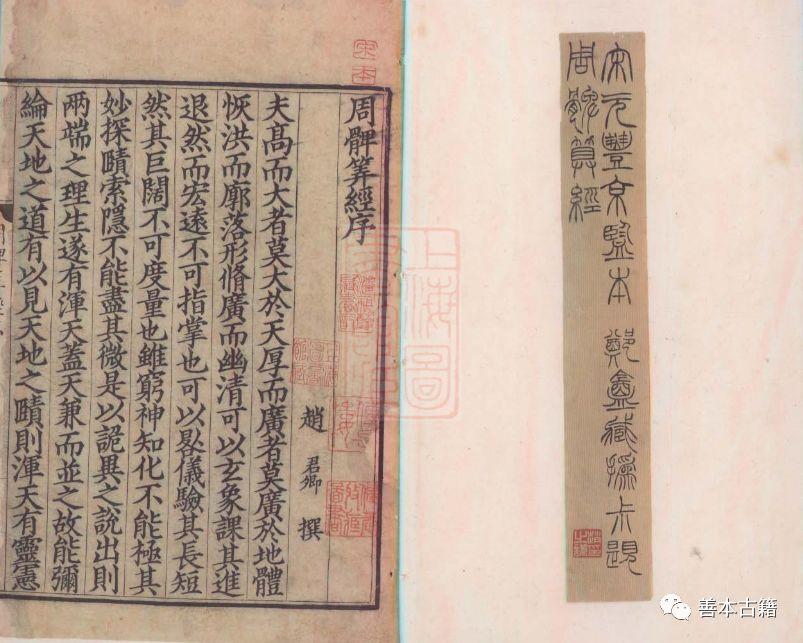 宋元豐京監本 鄭盦藏撝尗題
周髀算經
宋本
周髀筭經序
趙君卿 撰
夫髙而大者莫大於天厚而廣者莫廣於地體
恢洪而廓落形脩廣而幽清可以玄象課其進
退然而宏遠不可指掌也可以晷儀驗其長短
然其巨闊不可度量也雖窮神知化不能極其
妙探賾索隱不能盡其微是以詭異之說出則
兩端之理生遂有渾天蓋天兼而並之故能彌
綸天地之道有以見天地之賾則渾天有靈憲
上海圖
善本古籍